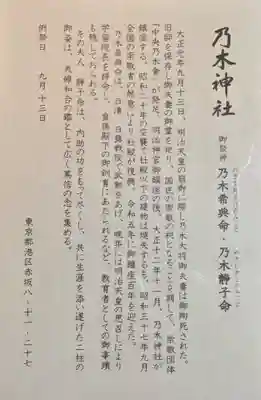 乃木神社
御祭神 乃木希典命・乃木靜子命
大正元年九月十三日、明治天皇の崩御に際し乃木大将御夫妻は御殉死された。
旧邸を保存し御夫妻の御霊を祀り、国民の崇敬の祠となることを期して、崇敬団体
「中央乃木會」が発足、明治神宮御鎮座の後、大正十二年十一月、乃木神社が
鎮座する。昭和二十年の空襲で社殿以下の建物は焼失するも、昭和三十七年九月
全国の崇敬者の熱意により社殿が復興、令和五年に御鎮座百年を迎えた。
乃木希典命は、日清・日露戦役で武勲をあげ、晩年には明治天皇の思召しにより
学習院長を拝命し、皇孫殿下の御訓育にあたられるなど、教育者としての御事蹟
も残しておられる。
その夫人、靜子命は、内助の功をもって尽くし、共に生涯を添い遂げた二柱の
御姿は、夫婦和合の鑑として広く萬倍の念を集める。
例祭日 九月十三日
東京都港区赤坂八-十一-二十七